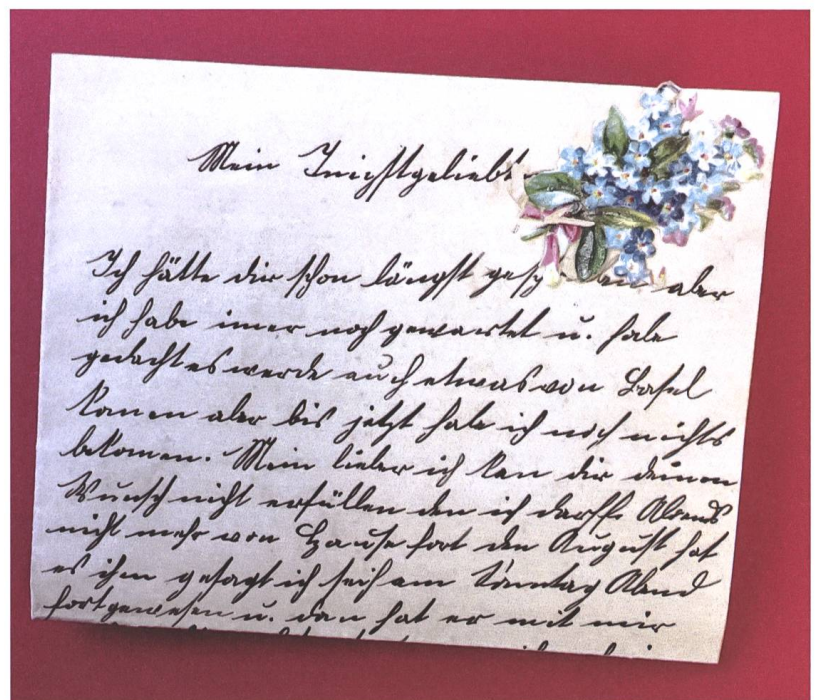 Mein Inigstgeliebt
Ich hätte dir schon längst gesch aber
ich habe imer noch gewartet u. habe
gedacht es werde auch etwas von Basel
komen aber bis jetzt habe ich noch nichts
bekomen. Mein lieber ich kan dir deinen
Wunsch nicht erfüllen den ich darffe Abends
nicht mehr von Hause fort den August hat
es ihm gesagt ich sei am Sonntag Abend
fortgewesen u. dan hat er mit mir